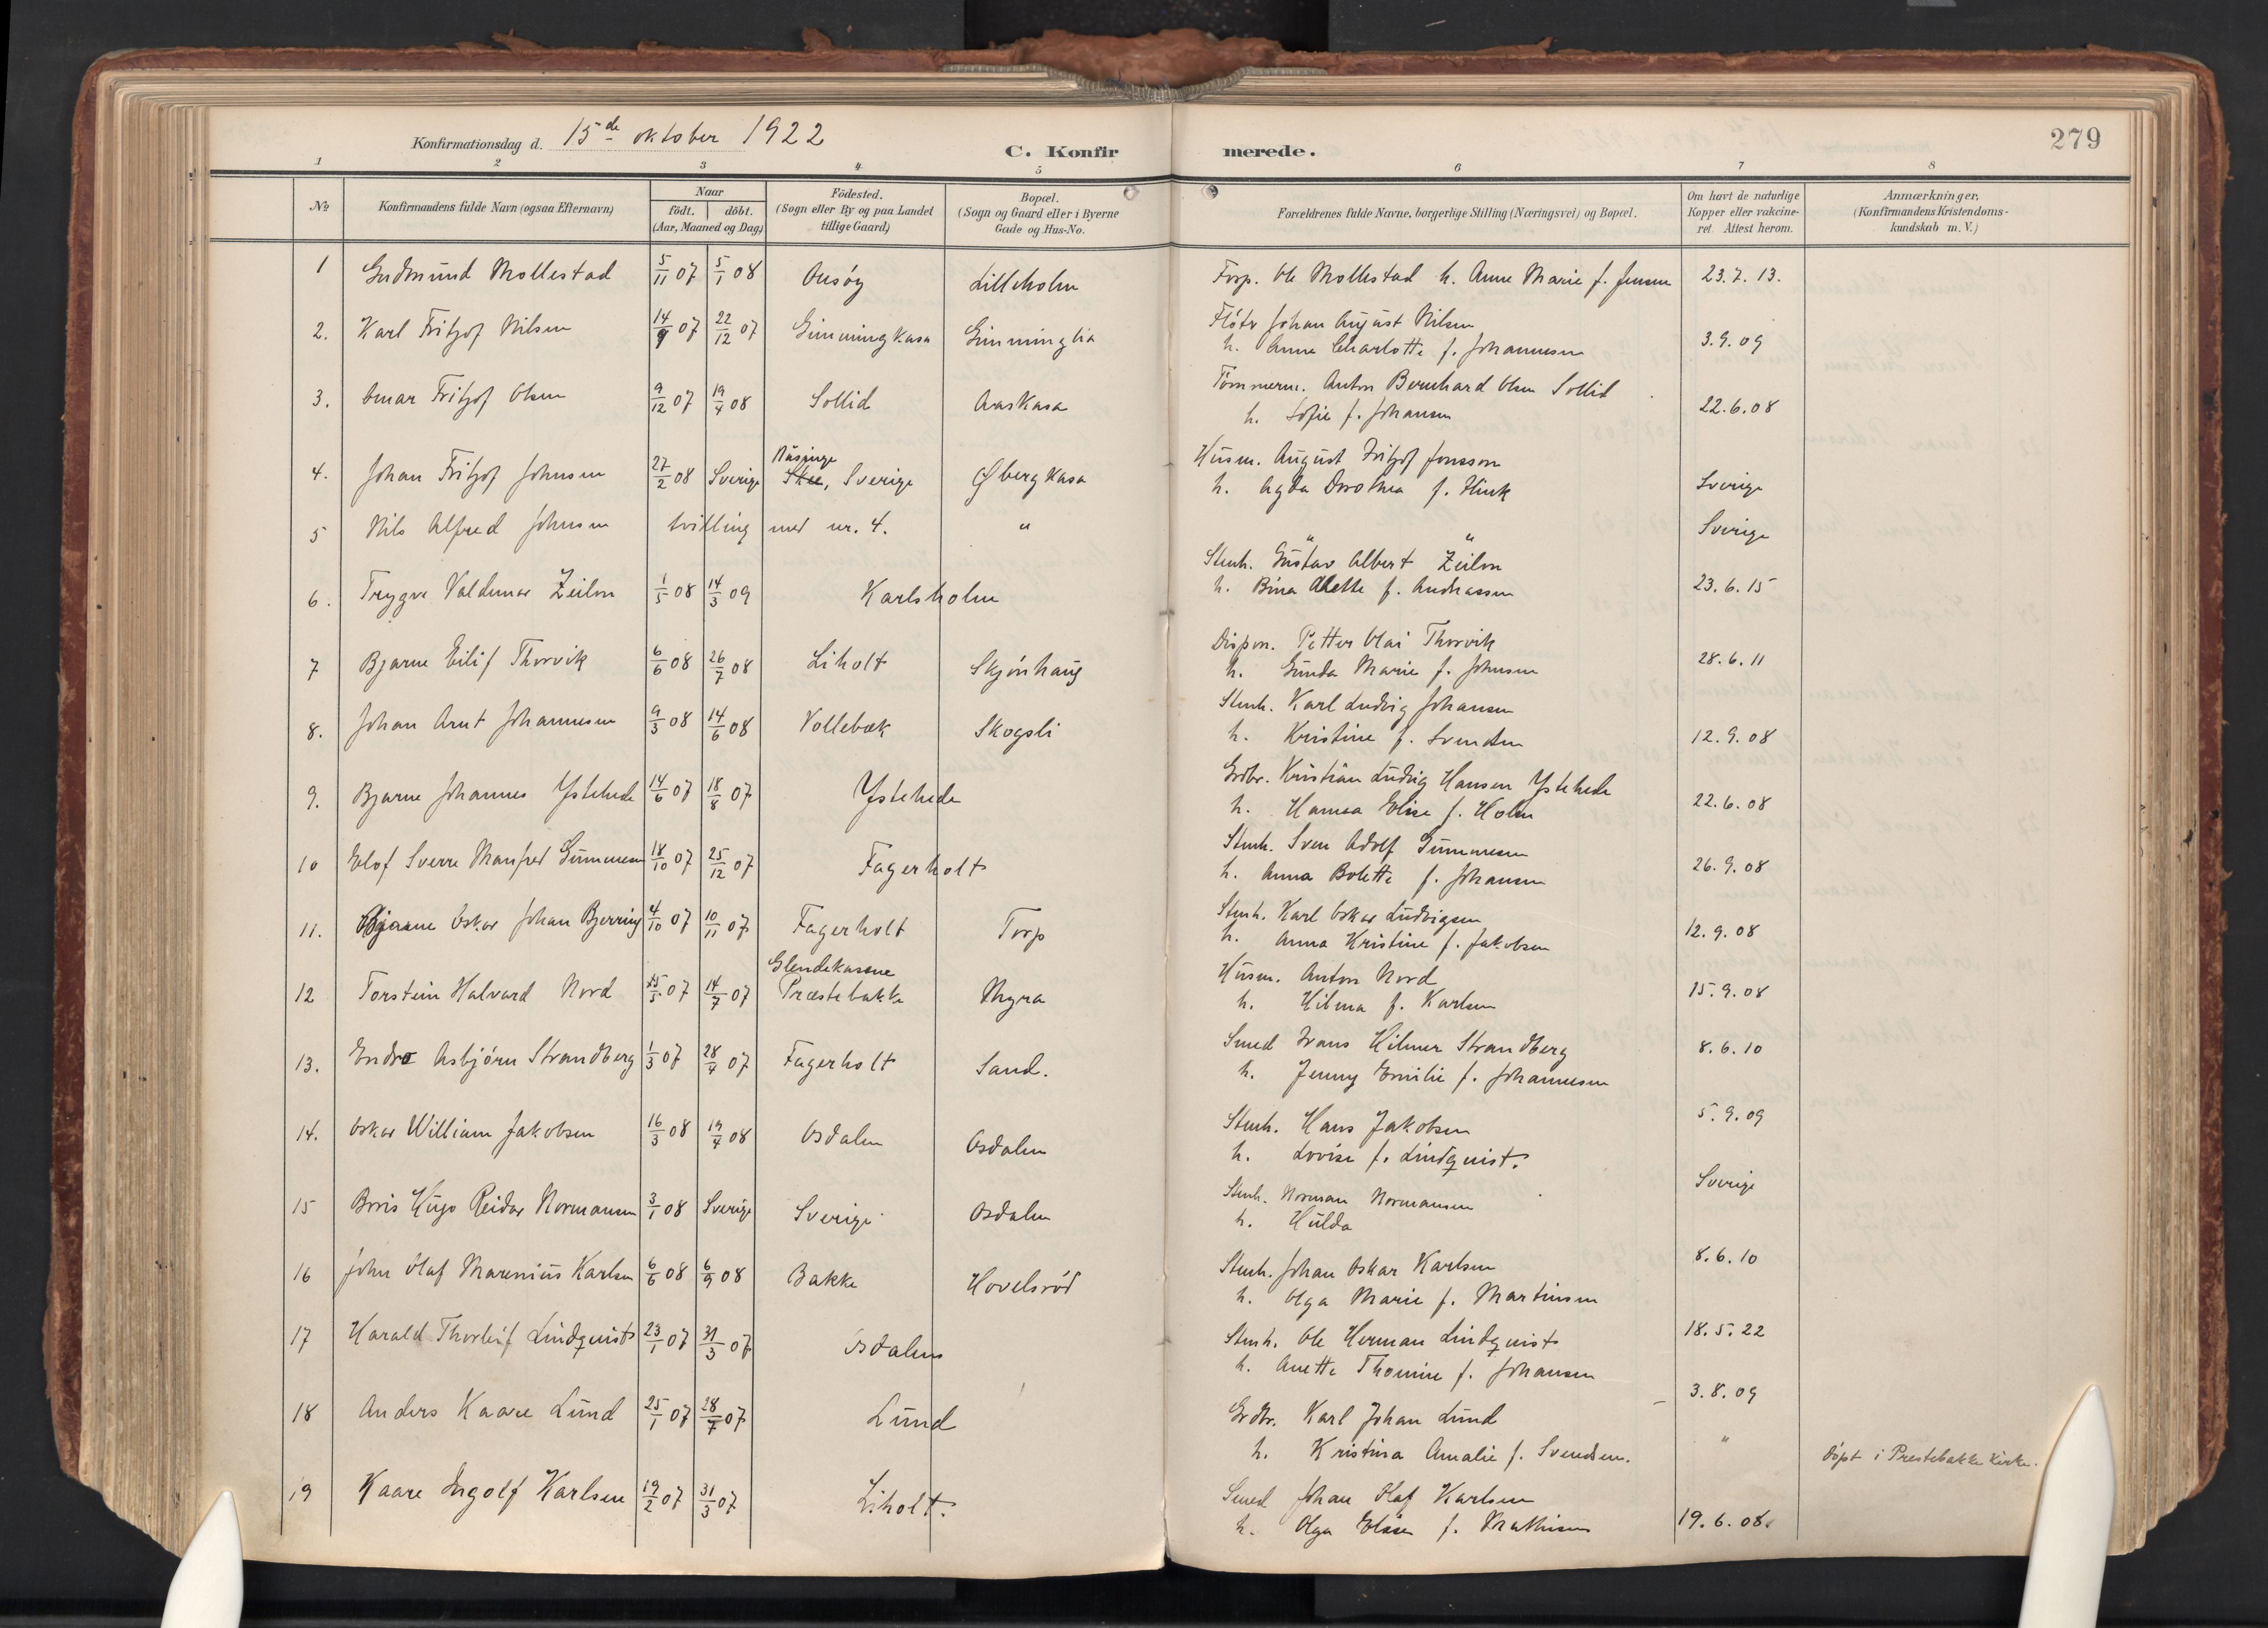 Konfirmationsdag d. 15de oktober 1922
C. Konfirmerede.
279
1 2 3 4 5 6 7 8
№
Konfirmandens fulde Navn (ogsaa Efternavn)
Naar
födt. döbt.
(Aar, Maaned og Dag)
Födested.
(Sogn eller By og paa Landet
tillige Gaard)
Bopæl.
(Sogn og Gaard eller i Byerne
Gade og Hus-No.
Forældrenes fulde Navne, borgerlige Stilling (Næringsvei) og Bopæl.
Om havt de naturlige
Kopper eller vakcine-
ret. Attest herom.
Anmærkninger,
(Konfirmandens Kristendoms-
kundskab m. V.)
1 Gudmund Mollestad 5/11 07 5/1 08 Lilleholm Forp. Ole Mollestad h. Anne Marie f. Jensen 23.7.13.
2. Karl Fritjof Nilsen 14/9 07 22/12 07 Gimmingkasa Gimminglia Fløtr Johan August Nilsen
h. Anna Charlotte f. Johannesen 3.9.09
3. Omar Fritjof Olsen 9/12 07 19/4 08 Sollid Aaskasa Tømmerm. Anton Bernhard Olsen Sollid
h. Sofie f. Johansen 22.6.08
4. Johan Fritjof Johnsen 27/2 08 Sverige Näsinge Skee, Sverige Øbergkasa Husm. August Fritjof Jonsson
h. Agda Dorothea f. Hink Sverige
5 Nils Alfred Johnsen tvilling med nr. 4. " " " Sverige
6. Trygve Valdemar Zeilon 1/5 08 14/3 09 Karlsholm Stenh. Gustav Albert Zeilon
h. Bina Alette f. Andreassen 23.6.15
7 Bjarne Eilif Thorvik 6/6 08 26/7 08 Liholt Skjönhaug Dispon. Petter Olai Thorvik
h. Gunda Marie f. Johnsen 28.6.11
8. Johan Arnt Johannesen 9/3 08 14/6 08 Vollebæk Skogsli Stenh. Karl Ludvig Johansen
h. Kristine f. Svendsen 12.9.08
9. Bjarne Johannes Ystehede 14/6 07 18/8 07 Ystehede Grdbr. Kristian Ludvig Hansen Ystehede
h. Hanna Elise f. Holm 22.6.08
10 Elof Sverre Manfred Gummesen 18/10 07 25/12 07 Fagerholt Stenh. Sven Adolf Gummesen
h. Anna Bolette f. Johansen 26.9.08
11. Bjarne Oskar Johan Bjerring 4/10 07 10/11 07 Fagerholt Torp Stenh. Karl Oskar Ludvigsen
h. Anna Kristine f. Jakobsen 12.9.08
12 Torstein Halvard Nord 25/5 07 14/7 07 Glendekasene Præstebakke Myra Husm. Anton Nord
h. Hilma f. Karlsen 15.9.08
13. Endre Asbjørn Strandberg 1/3 07 28/4 07 Fagerholt Sand. Smed Frans Hilmer Strandberg
h. Jenny Emilie f. Johannesen 8.6.10
14. Oskar William Jakobsen 16/3 08 19/4 08 Osdalen Osdalen Stenh. Hans Jakobsen
h. Lovise f. Lindquist. 5.9.09
15 Boris Hugo Reidar Normansen 3/1 08 Sverige Sverige Osdalen Stenh. Norman Normansen
h. Hulda Sverige
16 John Olaf Marenius Karlsen 6/6 08 6/9 08 Bakke Hovelsrød Stenh. Johan Oskar Karlsen
h. Olga Marie f. Martinsen 8.6.10
17 Harald Thorleif Lindquist 23/1 07 31/3 07 Osdalen Stenh. Ole Herman Lindquist
h. Anette Thomine f. Johansen 18.5.22
18 Anders Kaare Lund 25/1 07 28/7 07 Lund Grdbr. Karl Johan Lund 3.8.09
h. Kristina Amalie f. Svendsen. " Døpt i Prestebakke Kirke.
19 Kaare Ingolf Karlsen 19/2 07 31/3 07 Liholt. Smed Johan Olaf Karlsen
h. Olga Elise f. Mathisen 19.6.08.